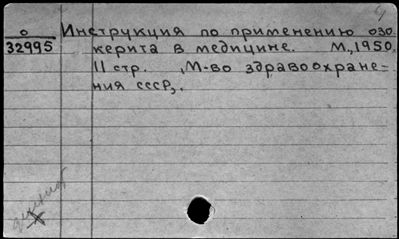 о
32995
Инструкция по применению озо
керита в медицине. М., 1950.
11 стр. (М-во здравоохране-
ния СССР).